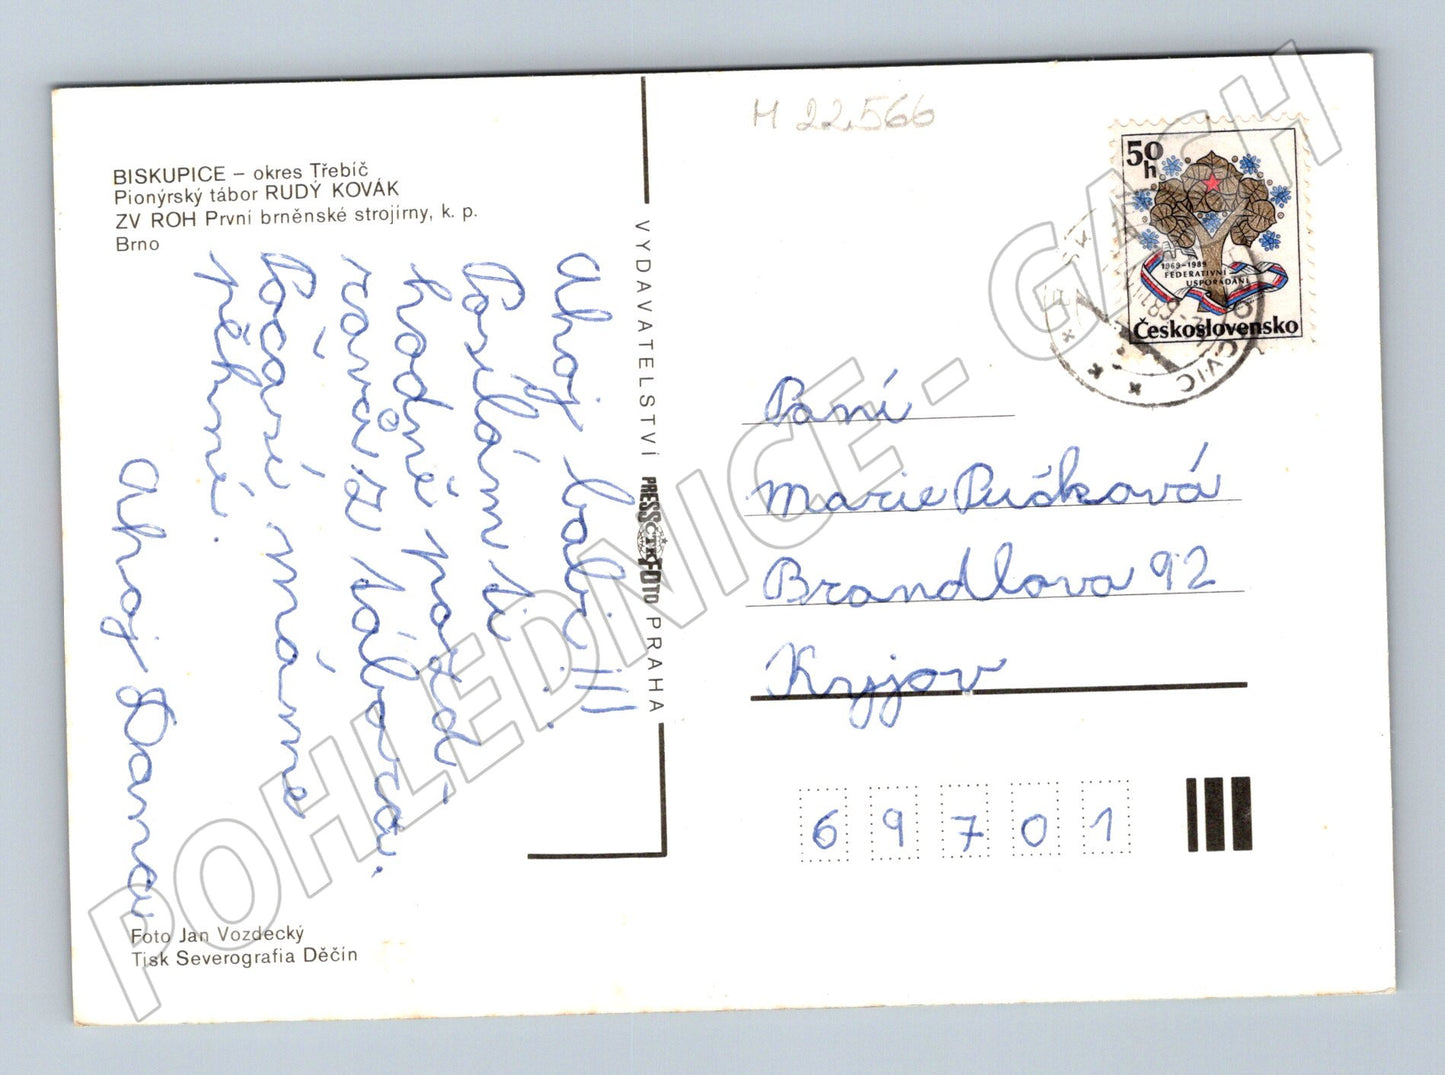 M 22.566
BISKUPICE – okres Třebíč
Pionýrský tábor RUDÝ KOVÁK
ZV ROH První brněnské strojírny, k. p.
Brno
Ahoj babi!!!
Posílám ti
hodně pozd
ravů z tábora.
Počasí máme
pěkné.
Ahoj Dana
VYDAVATELSTVÍ PRESSFOTO PRAHA
ČTK
50
h
1969–1989
FEDERATIVNÍ
USPOŘÁDÁNÍ
Československo
Paní
Marie Pučková
Brandlova 92
Kyjov
69701
Foto Jan Vozdecký
Tisk Severografia Děčín
POHLEDNICE - GASH